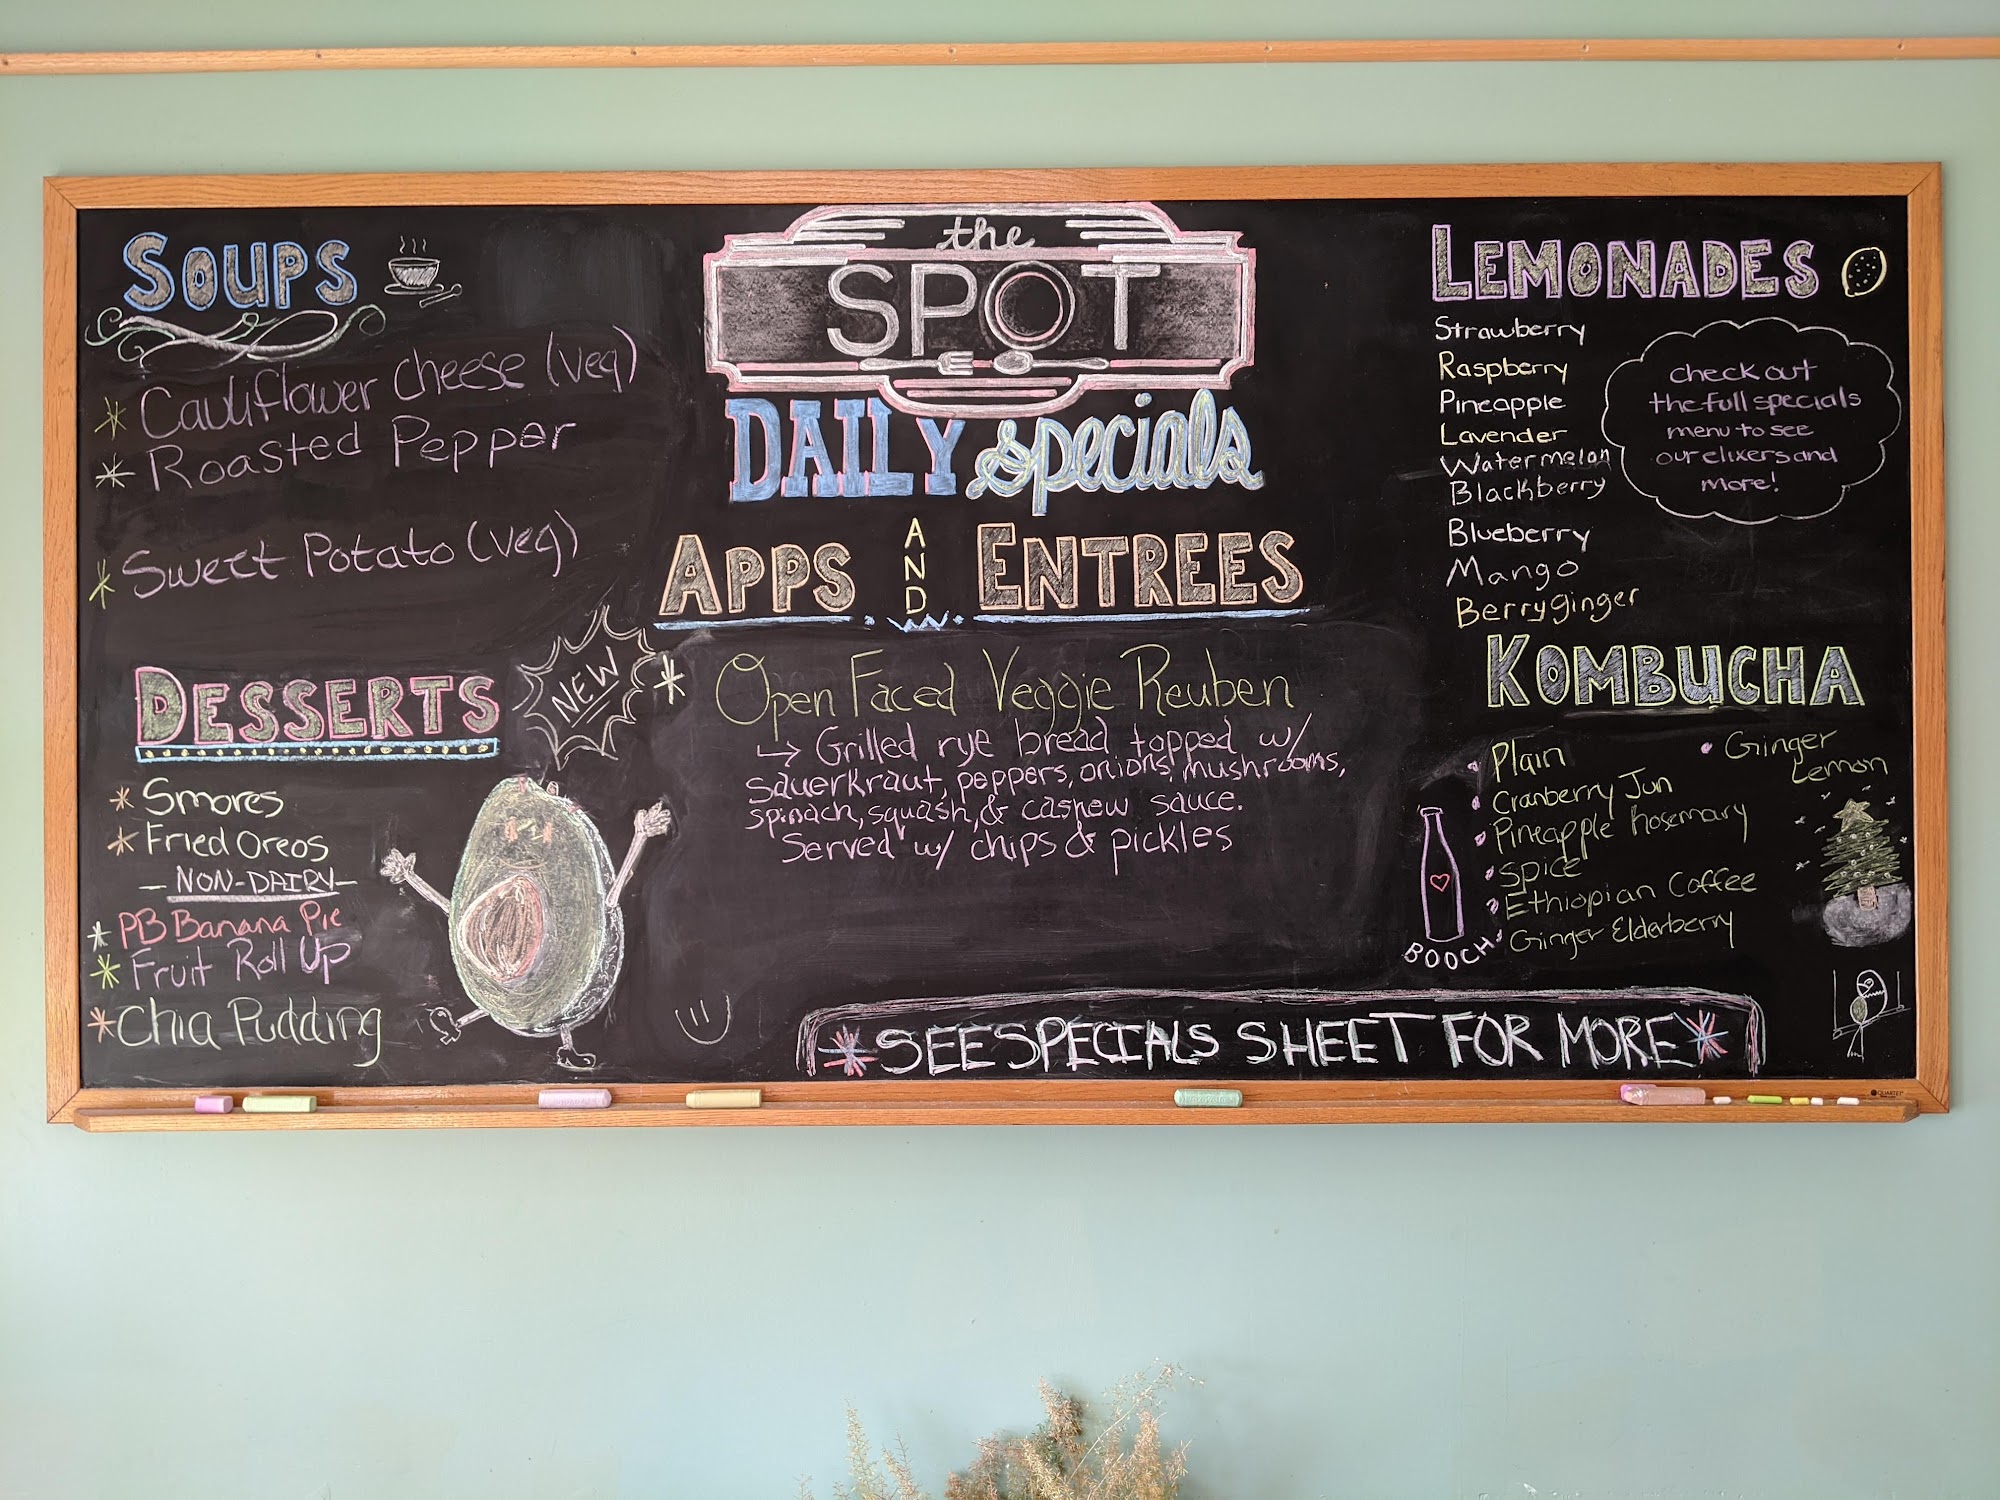 the
SPOT
DAILY specials
SOUPS
Cauliflower Cheese (veg)
Roasted Pepper
Sweet Potato (veg)
DESSERTS
Smores
Fried Oreos
- NON-DAIRY -
PB Banana Pie
Fruit Roll Up
Chia Pudding
APPS AND ENTREES
NEW
* Open Faced Veggie Reuben
→ Grilled rye bread topped w/
sauerkraut, peppers, onions, mushrooms,
spinach, squash, & cashew sauce.
Served w/ chips & pickles
LEMONADES
Strawberry
Raspberry
Pineapple
Lavender
Watermelon
Blackberry
Blueberry
Mango
Berry ginger
check out
the full specials
menu to see
our elixers and
more!
KOMBUCHA
Plain
Cranberry Jun
Pineapple Rosemary
Spice
Ethiopian Coffee
Ginger Elderberry
Ginger
Lemon
BOOCH
*SEE SPECIALS SHEET FOR MORE*
QUARTET